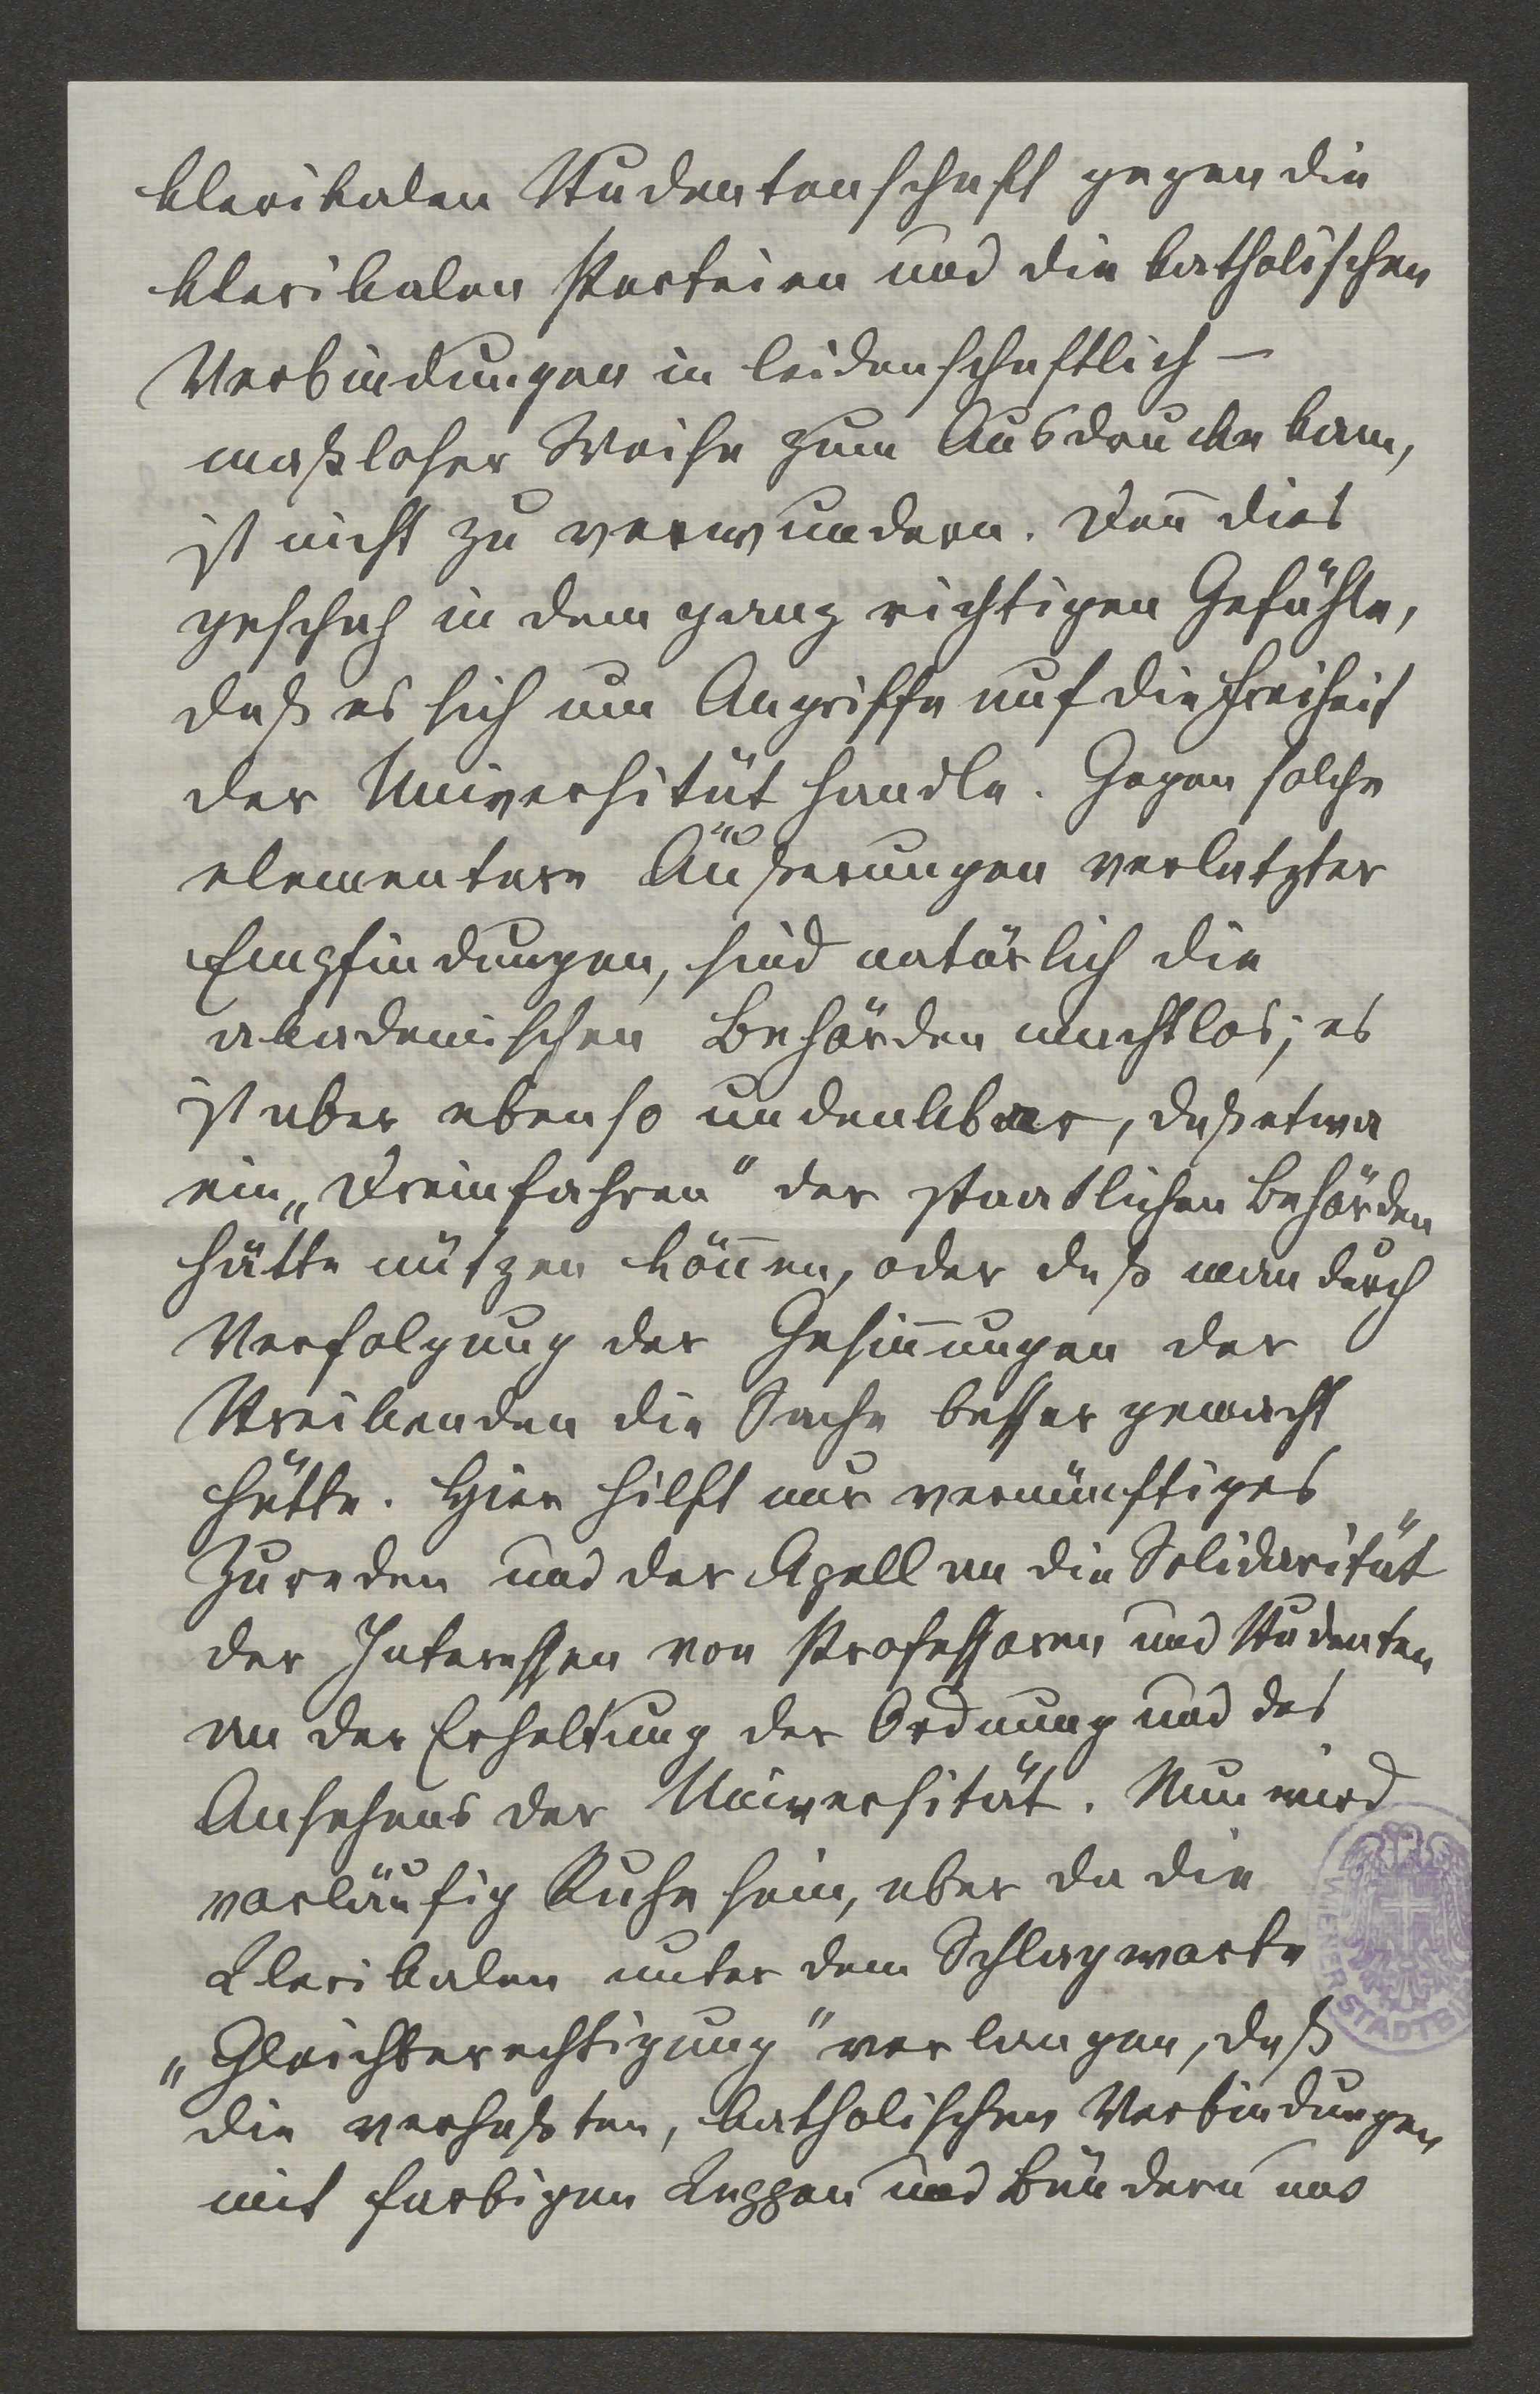 klerikalen Studentenschaft gegen die
klerikalen Parteien und die katholischen
Verbindungen in leidenschaftlich-
maßloser Weise zum Ausdrucke kam,
ist nicht zu verwundern. Den̄ dies
geschah in dem ganz richtigen Gefühle,
daß es sich um Angriffe auf die Freiheit
der Universität handle. Gegen solche
elementare Äußerungen verletzter
Empfindungen, sind natürlich die
akademischen Behörden machtlos; es
ist aber ebenso undenkbar, daß etwa
ein „Dreinfahren“ der staatlichen Behörden
hätte nützen kön̄en, oder daß man durch
Verfolgung der Gesin̄ungen der
Streikenden die Sache besser gemacht
hätte. Hier hilft nur vernünftiges
Zureden und der Apell an die Solidarität
der Interessen von Professoren und Studenten
an der Erhaltung der Ordnung und des
Ansehens der Universität. Nun wird
vorläufig Ruhe sein, aber da die
Klerikalen unter dem Schlagworte
„Gleichberechtigung“ verlangen, daß
die verhaßten, katholischen Verbindungen
mit farbigen Kappen und Bändern und
WIENER STADTBI